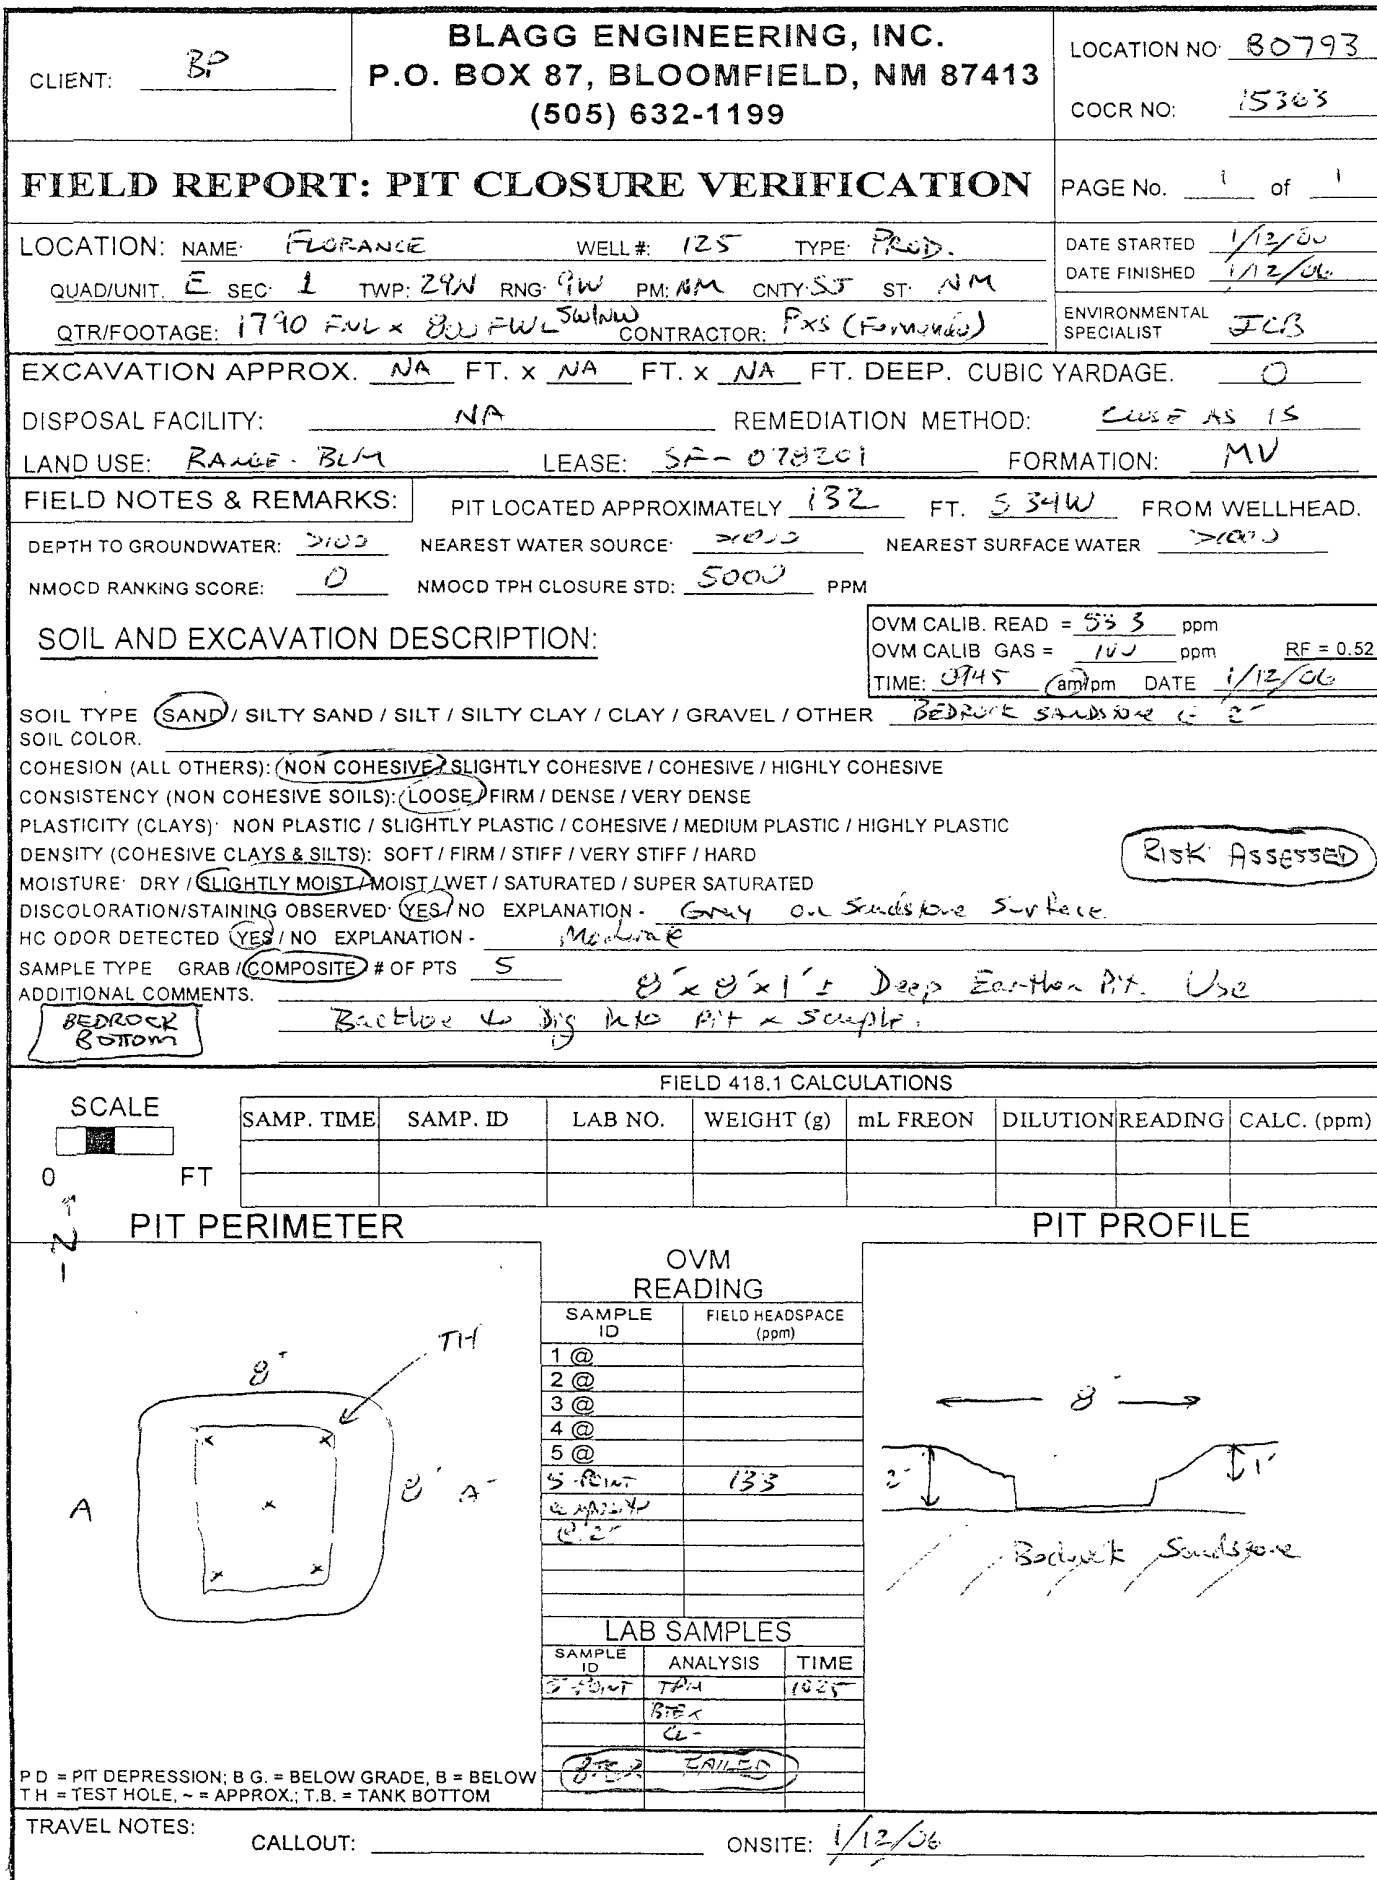 CLIENT: BP
BLAGG ENGINEERING, INC.
P.O. BOX 87, BLOOMFIELD, NM 87413
(505) 632-1199
LOCATION NO: 80793
COCR NO: 15303
FIELD REPORT: PIT CLOSURE VERIFICATION
PAGE No. 1 of 1
LOCATION: NAME: FLORANCE WELL #: 125 TYPE: PROD.
QUAD/UNIT: E SEC: 1 TWP: 29N RNG: 9W PM: NM CNTY: SJ ST: NM
QTR/FOOTAGE: 1790 FNL x 800 FWL SW/NW CONTRACTOR: PXS (Fernando)
DATE STARTED 1/12/06
DATE FINISHED 1/12/06
ENVIRONMENTAL SPECIALIST JCB
EXCAVATION APPROX. NA FT. x NA FT. x NA FT. DEEP. CUBIC YARDAGE. 0
DISPOSAL FACILITY: NA REMEDIATION METHOD: CLOSE AS IS
LAND USE: RANGE - BLM LEASE: SF-078201 FORMATION: MV
FIELD NOTES & REMARKS: PIT LOCATED APPROXIMATELY 132 FT. S34W FROM WELLHEAD.
DEPTH TO GROUNDWATER: >100 NEAREST WATER SOURCE: >1000 NEAREST SURFACE WATER >1000
NMOCD RANKING SCORE: 0 NMOCD TPH CLOSURE STD: 5000 PPM
SOIL AND EXCAVATION DESCRIPTION:
OVM CALIB. READ = 53.3 ppm
OVM CALIB GAS = 100 ppm RF = 0.52
TIME: 0945 am/pm DATE 1/12/06
SOIL TYPE SAND / SILTY SAND / SILT / SILTY CLAY / CLAY / GRAVEL / OTHER BEDROCK SANDSTONE @ 2'
SOIL COLOR.
COHESION (ALL OTHERS): NON COHESIVE / SLIGHTLY COHESIVE / COHESIVE / HIGHLY COHESIVE
CONSISTENCY (NON COHESIVE SOILS): LOOSE / FIRM / DENSE / VERY DENSE
PLASTICITY (CLAYS): NON PLASTIC / SLIGHTLY PLASTIC / COHESIVE / MEDIUM PLASTIC / HIGHLY PLASTIC
DENSITY (COHESIVE CLAYS & SILTS): SOFT / FIRM / STIFF / VERY STIFF / HARD
RISK ASSESSED
MOISTURE: DRY / SLIGHTLY MOIST / MOIST / WET / SATURATED / SUPER SATURATED
DISCOLORATION/STAINING OBSERVED: YES / NO EXPLANATION - Gray on Sandstone Surface.
HC ODOR DETECTED YES / NO EXPLANATION - Moderate
SAMPLE TYPE GRAB / COMPOSITE # OF PTS 5
ADDITIONAL COMMENTS. 8' x 8' x 1' ± Deep Earthen Pit. Use
Backhoe to Dig Into Pit & Sample.
BEDROCK
BOTTOM
FIELD 418.1 CALCULATIONS
SCALE
0 FT
SAMP. TIME SAMP. ID LAB NO. WEIGHT (g) mL FREON DILUTION READING CALC. (ppm)
N
PIT PERIMETER
PIT PROFILE
OVM
READING
SAMPLE ID FIELD HEADSPACE (ppm)
1 @
2 @
3 @
4 @
5 @
5-POINT 133
@ 2'
TH
8'
8'
A A'
8'
2' 1'
Bedrock Sandstone
LAB SAMPLES
SAMPLE ID ANALYSIS TIME
5-POINT TPH 1025
BTEX
CL-
BTEX FAILED
P D = PIT DEPRESSION; B G. = BELOW GRADE, B = BELOW
T H = TEST HOLE, ~ = APPROX.; T.B. = TANK BOTTOM
TRAVEL NOTES: CALLOUT: ONSITE: 1/12/06